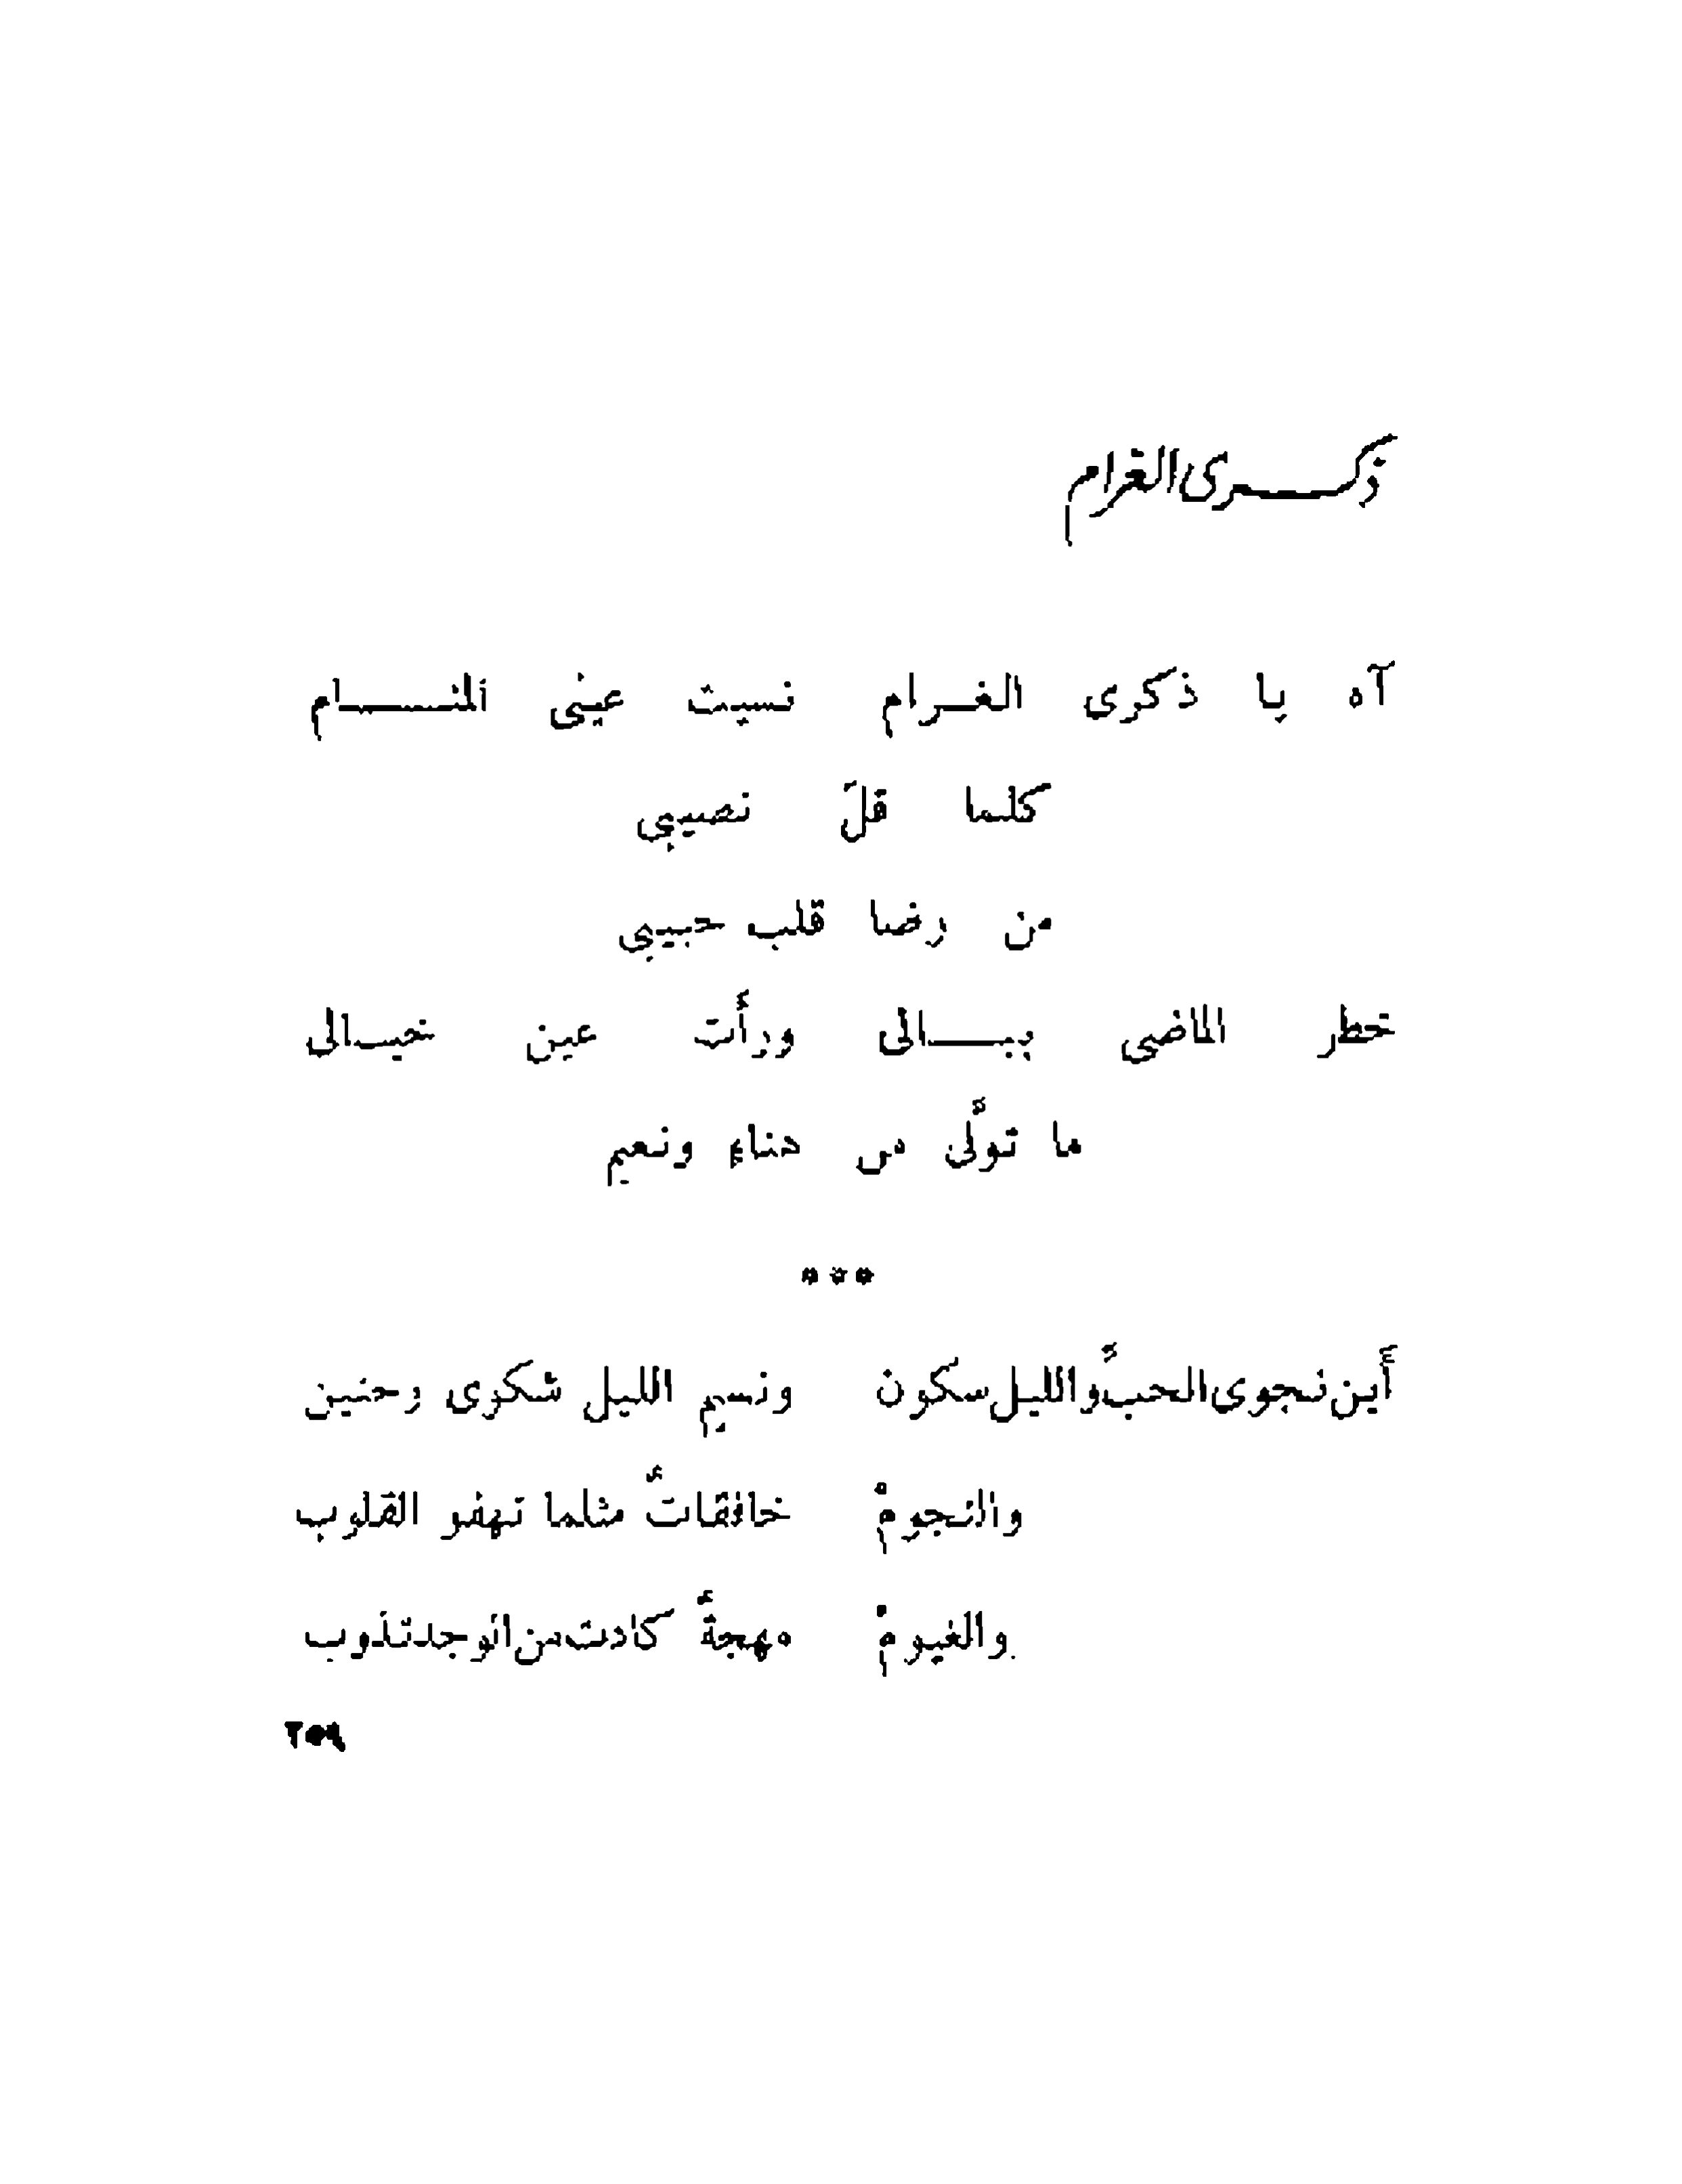 ذكرى الغرام
آه يا ذكرى الغرام نسيت عينى المنام
كلما قلّ نصيبى
من رضا قلب حبيبى
خطر الماضى ببالى ورأت عين خيالى
ما تولَّى من هناء ونعيم
***
أَين نجوى الحبِّ والليل سكون ونسيم الليل شكوى وحنين
والنجومْ خافقاتٌ مثلما تهفو القلوب
والغيومْ مهجةٌ كادت من الوجد تذوب
٢٥٩